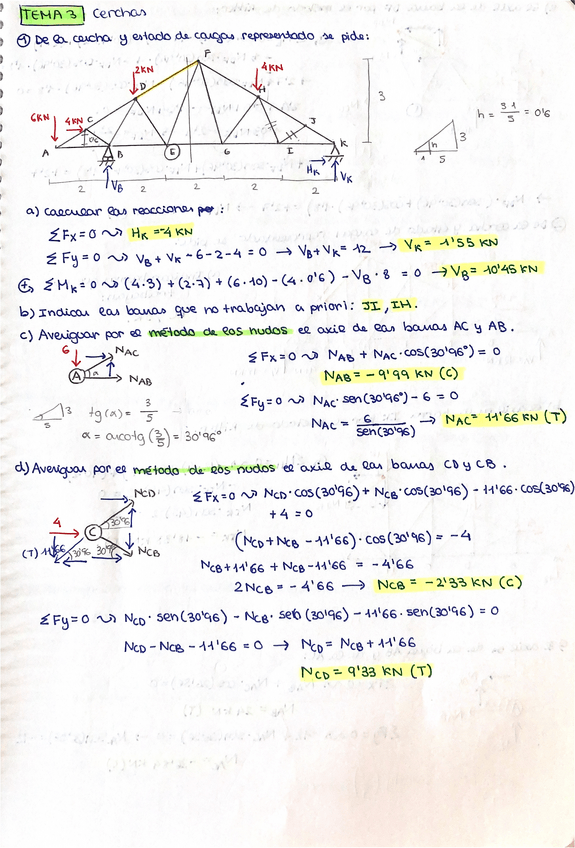 TEMA 3 Cerchas
① De la cercha y estado de cargas representado, se pide:
F
2KN
4KN
D
H
3
6KN
4KN
C
0'6
J
A
B
E
G
I
K
H_K
V_K
V_B
2 2 2 2 2
h = 3·1/5 = 0'6
h
3
1
5
a) Calcular las reacciones:
ΣFx = 0 ⤳ H_K = -4 KN
ΣFy = 0 ⤳ V_B + V_K - 6 - 2 - 4 = 0 → V_B + V_K = 12 → V_K = 1'55 KN
ΣM_K = 0 ⤳ (4·3) + (2·7) + (6·10) - (4·0'6) - V_B · 8 = 0 → V_B = 10'45 KN
b) Indicar las barras que no trabajan a priori: JI, IH.
c) Averiguar por el método de los nudos el axil de las barras AC y AB.
6
N_AC
A
α
N_AB
ΣFx = 0 ⤳ N_AB + N_AC · cos(30'96°) = 0
N_AB = -9'99 KN (C)
ΣFy = 0 ⤳ N_AC · sen(30'96°) - 6 = 0
N_AC = 6/sen(30'96) → N_AC = 11'66 KN (T)
3
5
tg(α) = 3/5
α = arcotg(3/5) = 30'96°
d) Averiguar por el método de los nudos el axil de las barras CD y CB.
N_CD
4
C
30'96
(T) 11'66
30'96
30'96
N_CB
ΣFx = 0 ⤳ N_CD · cos(30'96) + N_CB · cos(30'96) - 11'66 · cos(30'96)
+ 4 = 0
(N_CD + N_CB - 11'66) · cos(30'96) = -4
N_CB + 11'66 + N_CB - 11'66 = -4'66
2N_CB = -4'66 → N_CB = -2'33 KN (C)
ΣFy = 0 ⤳ N_CD · sen(30'96) - N_CB · sen(30'96) - 11'66 · sen(30'96) = 0
N_CD - N_CB - 11'66 = 0 → N_CD = N_CB + 11'66
N_CD = 9'33 KN (T)